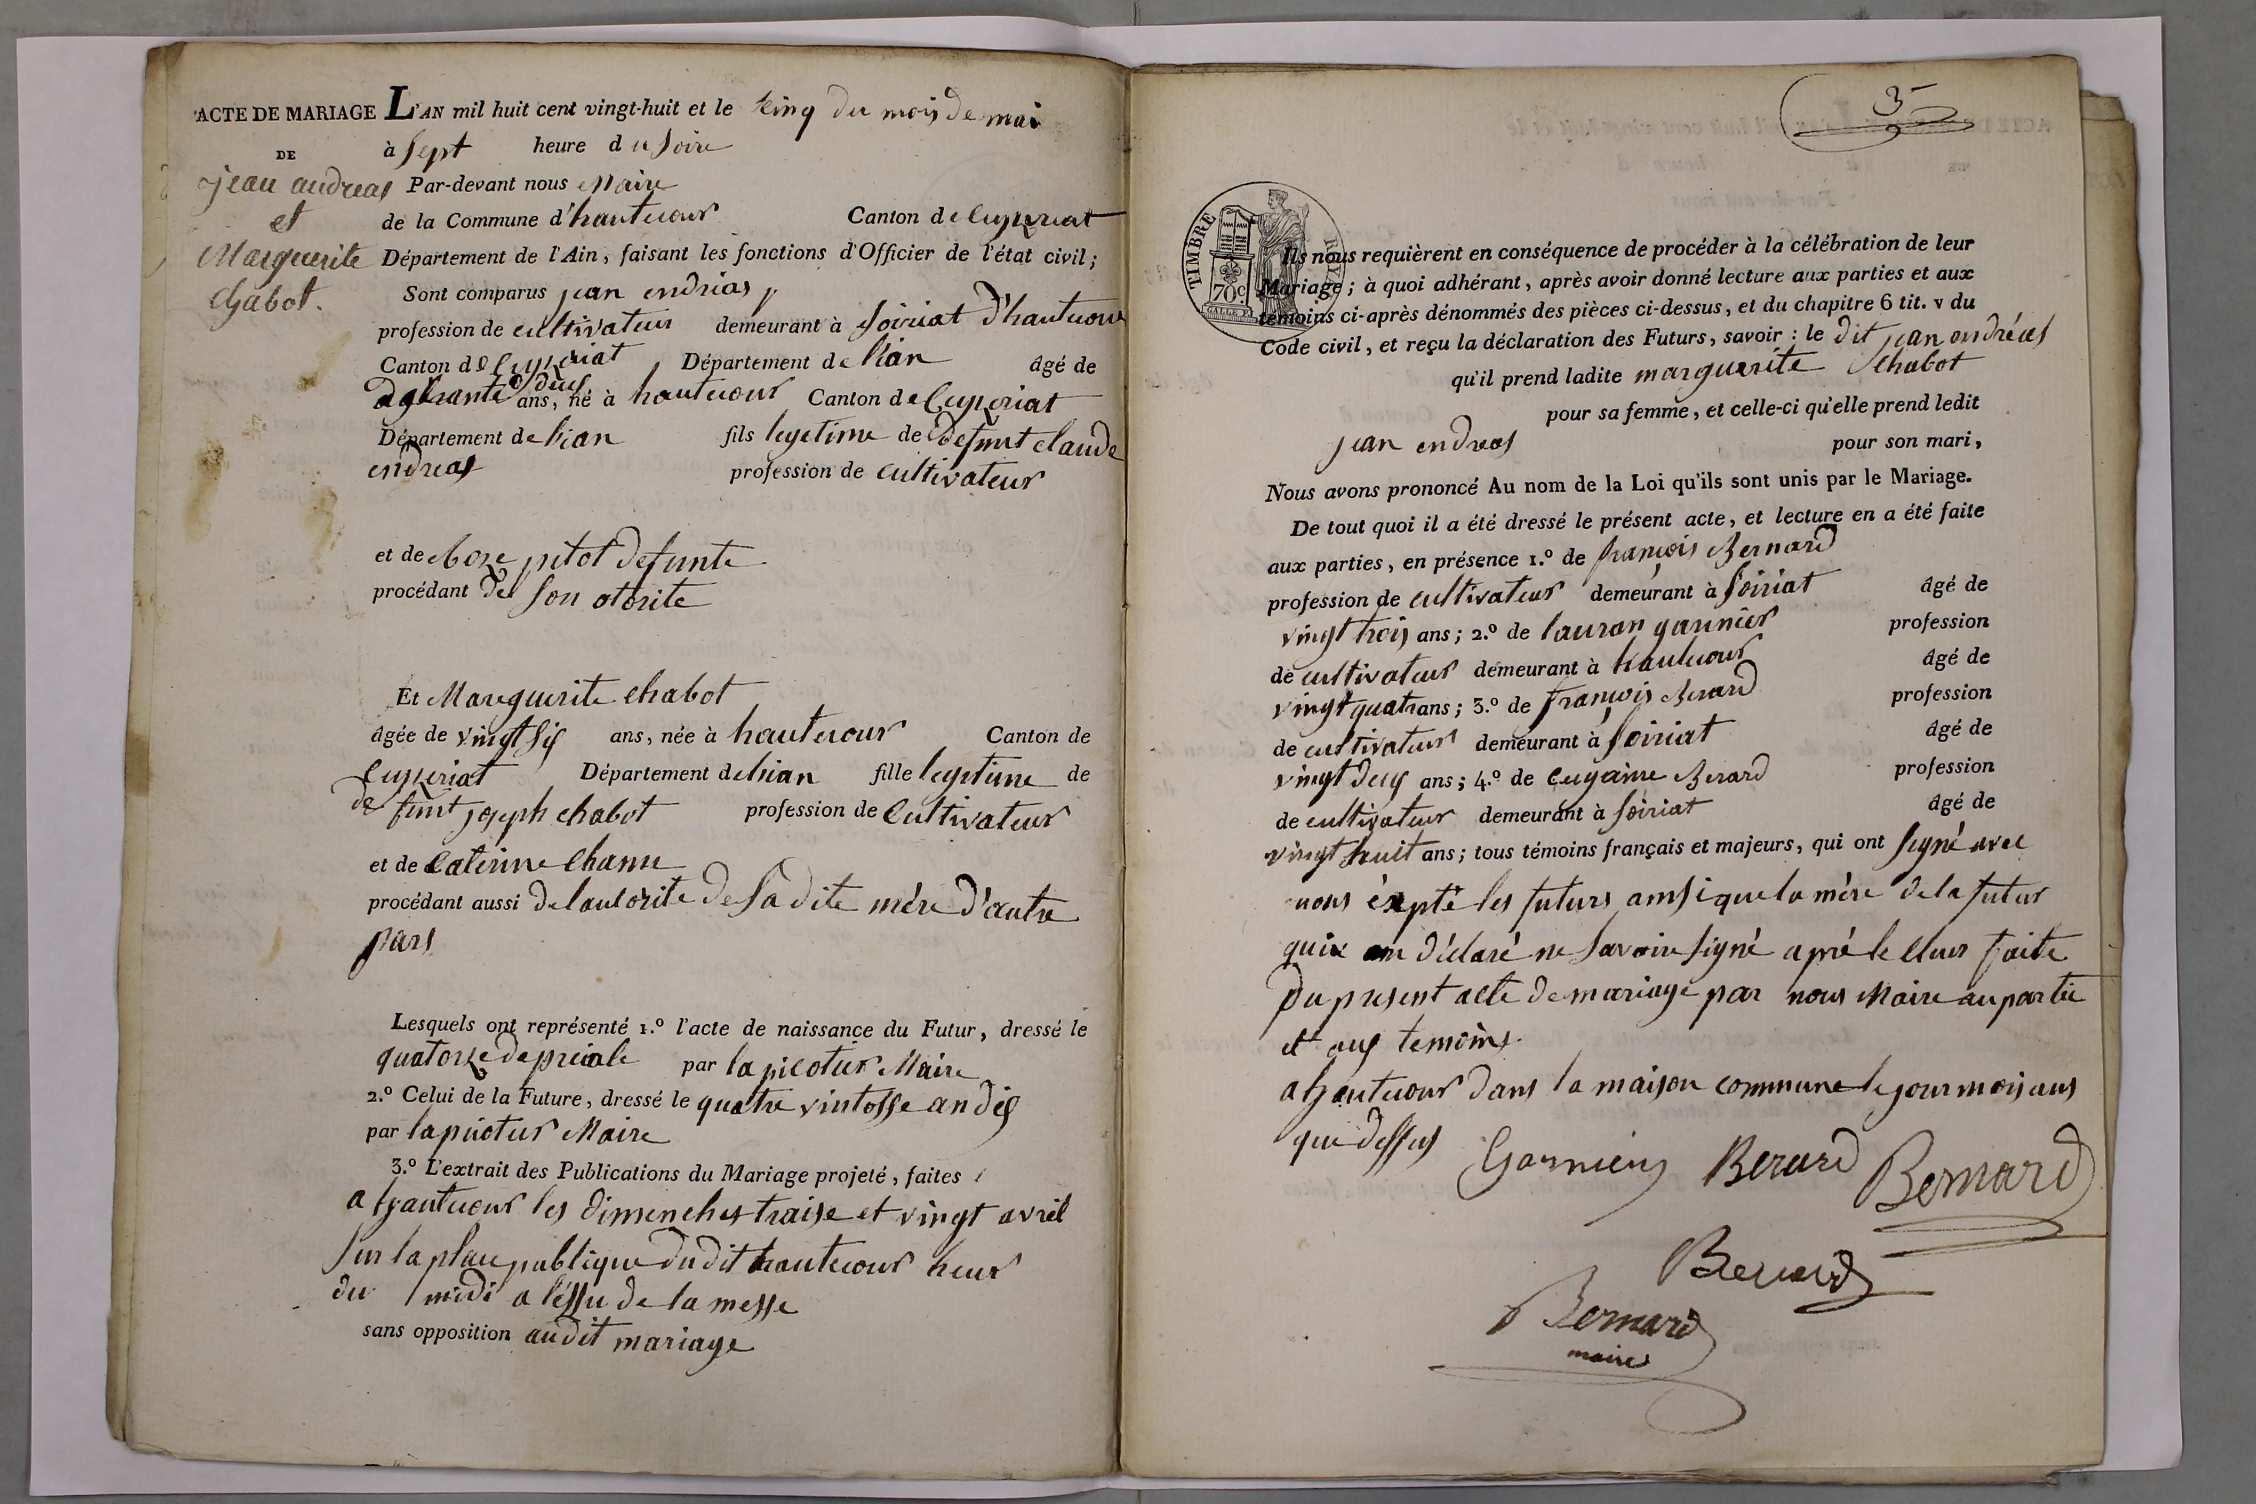 ACTE DE MARIAGE
DE
jean andreas
et
Marguerite
Chabot.
L'AN mil huit cent vingt-huit et le sinq du mois de mai
à sept heure du soire
Par-devant nous Maire
de la Commune d'hautecour Canton de Ceyzeriat
Département de l'Ain, faisant les fonctions d'Officier de l'état civil;
Sont comparus jean endrias
profession de cultivateur demeurant à soiriat d'hautecour
Canton de Ceyzeriat Département de l'ian âgé de
ans, né à hautecour Canton de Ceyzeriat
Département de l'ian fils legetime de defunt claude
endreas profession de cultivateur
et de pitot defunte
procédant de son otorite
Et Marguerite chabot
âgée de vingt six ans, née à hautecour Canton de
Ceyzeriat Département de l'ian fille legetime de
defunt joseph chabot profession de Cultivateur
et de Caterine
procédant aussi de lautorite de sa dite mére d'autre
pars
Lesquels ont représenté 1.º l'acte de naissance du Futur, dressé le
quatorze de par la picotier Maire
2.º Celui de la Future, dressé le quatre vintosse an dix
par la picotier Maire
3.º L'extrait des Publications du Mariage projeté, faites
a hautecour les dimenches traise et vingt avril
sur la place publique du dit hautecour heur
du midi a l'éssu de la messe
sans opposition audit mariage
3
TIMBRE ROYAL
70 c.
Ils nous requièrent en conséquence de procéder à la célébration de leur
Mariage; à quoi adhérant, après avoir donné lecture aux parties et aux
témoins ci-après dénommés des pièces ci-dessus, et du chapitre 6 tit. v du
Code civil, et reçu la déclaration des Futurs, savoir: le dit jean endréas
qu'il prend ladite marguerite Chabot
pour sa femme, et celle-ci qu'elle prend ledit
jean endreas pour son mari,
Nous avons prononcé Au nom de la Loi qu'ils sont unis par le Mariage.
De tout quoi il a été dressé le présent acte, et lecture en a été faite
aux parties, en présence 1.º de françois Bernard
profession de cultivateur demeurant à soiriat âgé de
vingt trois ans; 2.º de lauran garnier profession
de cultivateur demeurant à hautecour âgé de
vingt quatr ans; 3.º de françois Berard profession
de cultivateur demeurant à soiriat âgé de
vingt deux ans; 4.º de Berard profession
de cultivateur demeurant à soiriat âgé de
vingt huit ans; tous témoins français et majeurs, qui ont signé avec
nous éxpté les futurs ainsi que la mére de la futur
quix on déclaré ne savoire signé apré le cteur faite
du present acte de mariage par nous Maire au partie
et aux temoins.
a hautecour dans la maison commune le jour mois ans
que dessus
Garnier Berard Bernard
Berard
Bernard
maire